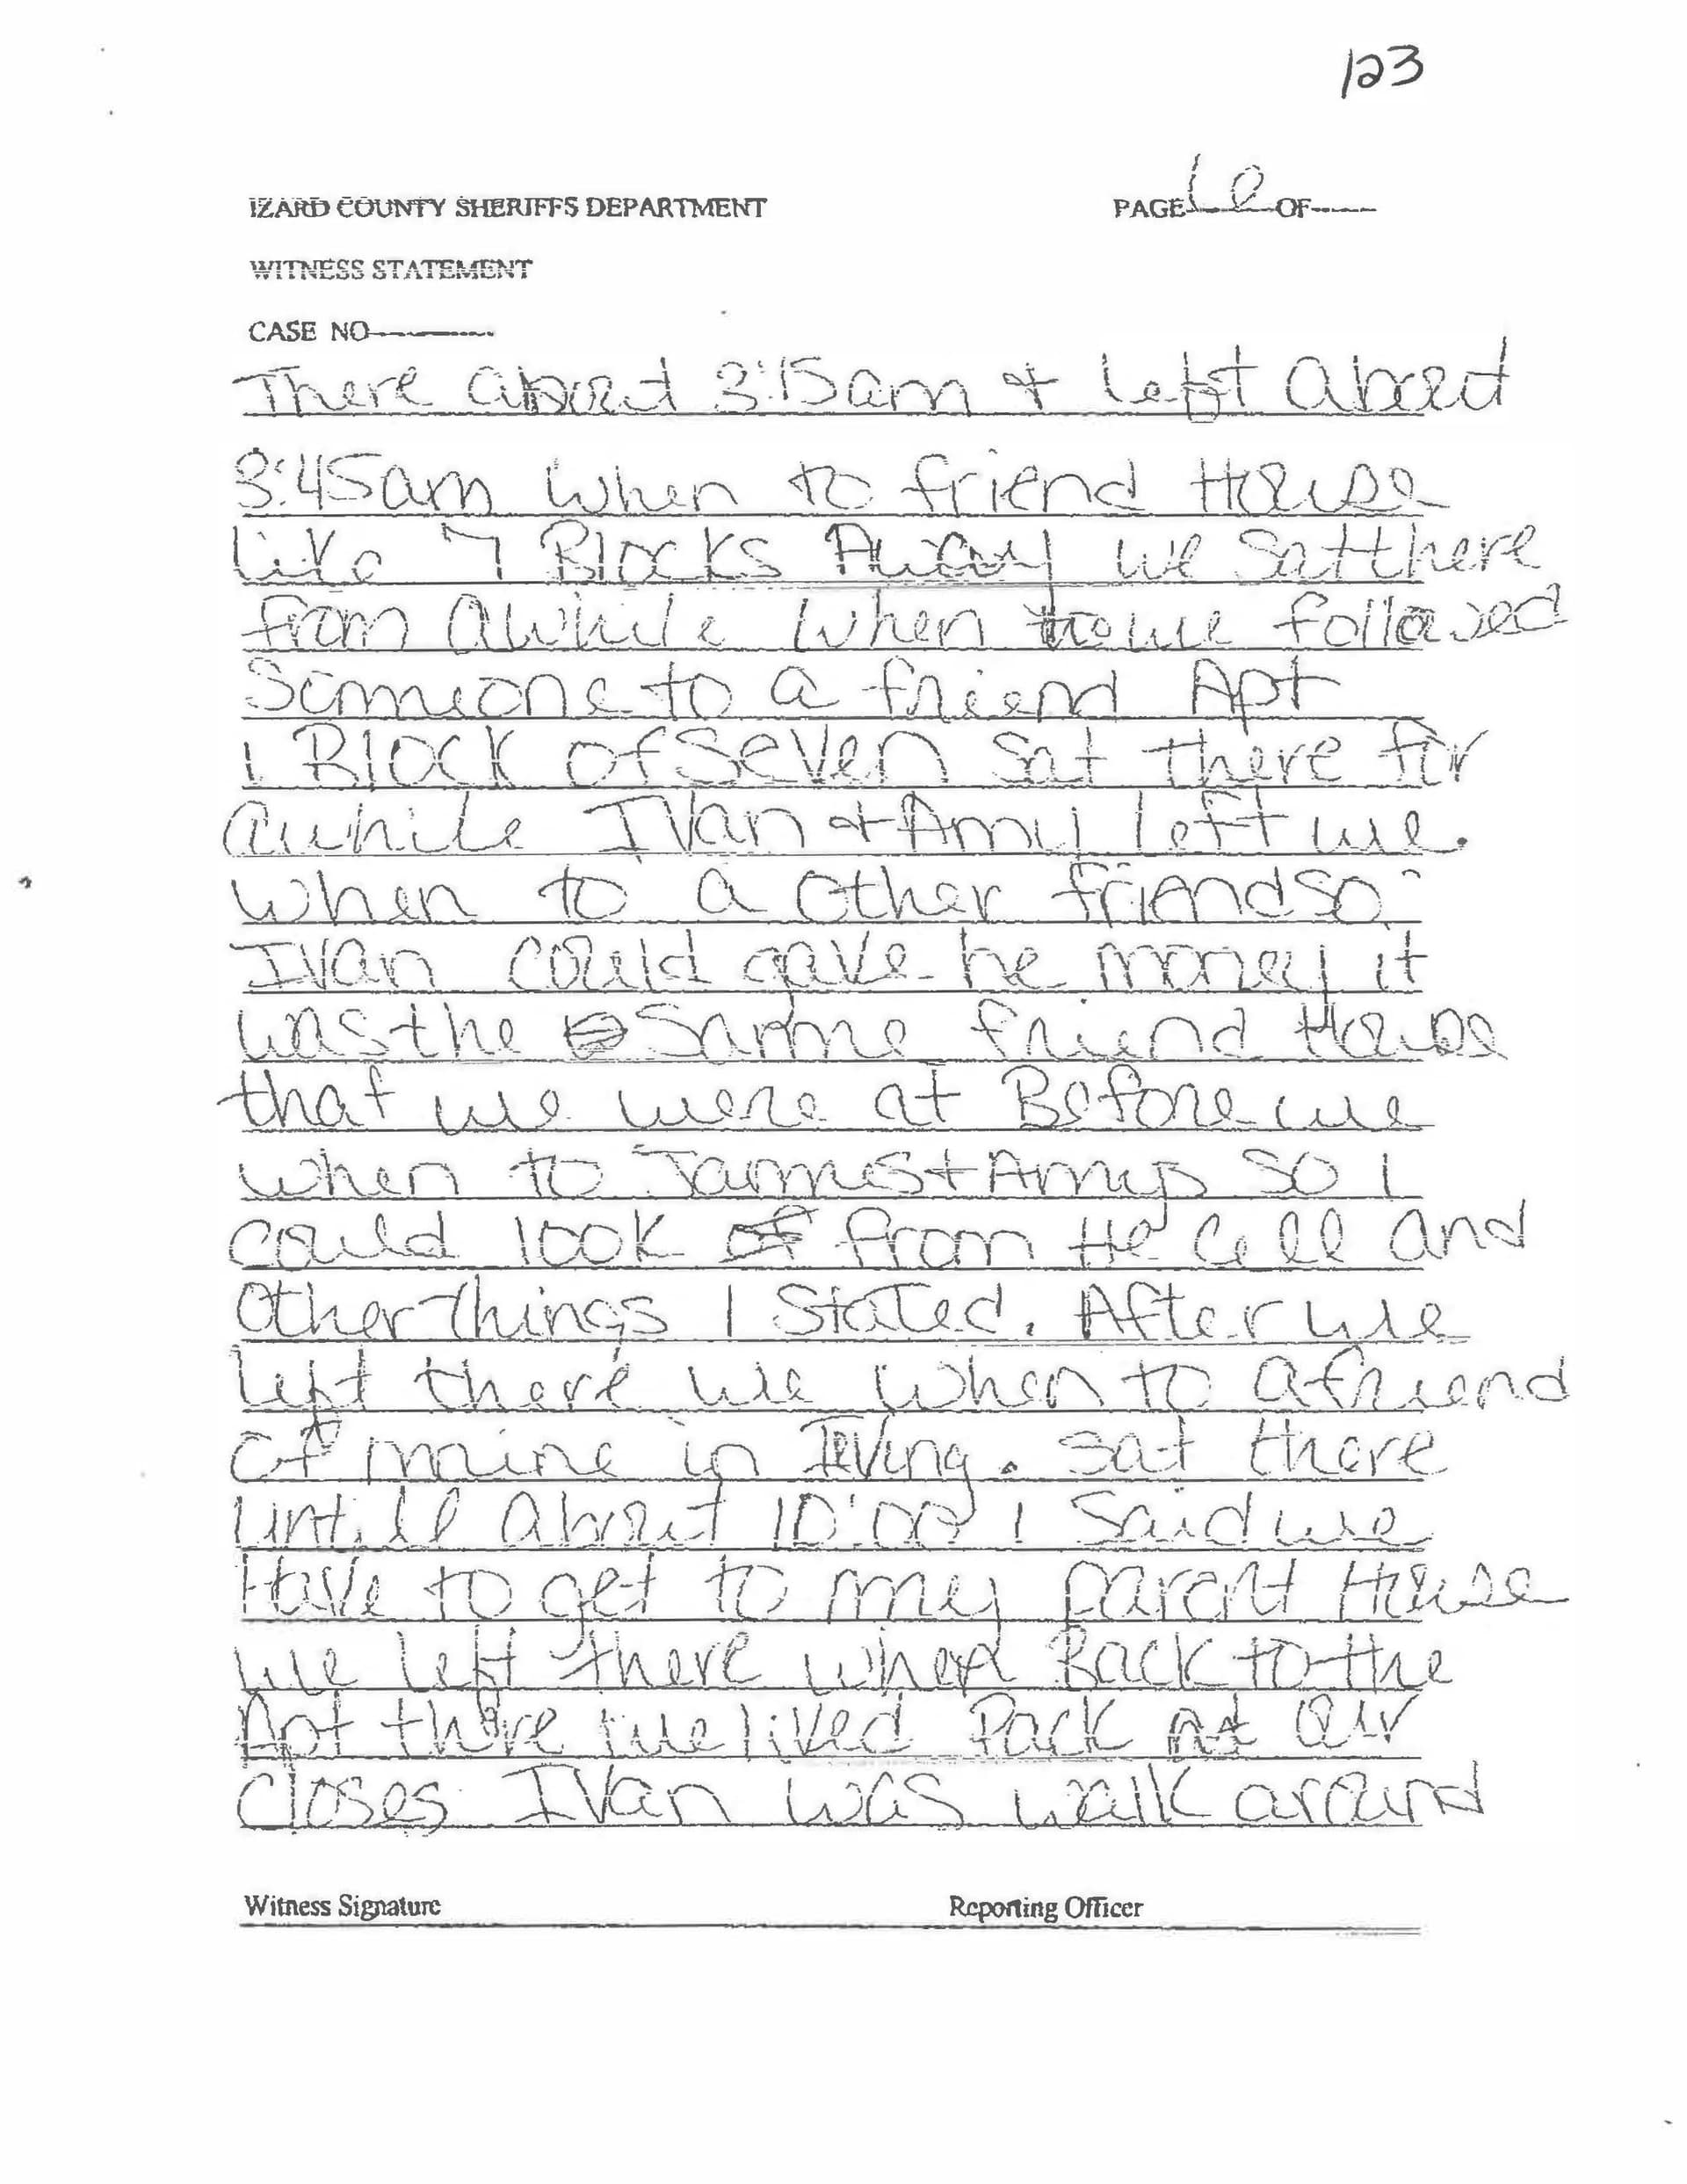 123
IZARD COUNTY SHERIFFS DEPARTMENT PAGE 6 OF
WITNESS STATEMENT
CASE NO
There about 3:15am & left about
3:45am when to friend House
like 7 Blocks Away we sat there
from awhile when we followed
Someone to a friend Apt
1 Block of Seven sat there for
awhile Ivan & Amy left we.
when to a other friend so
Ivan could gave he money it
was the Same friend House
that we were at Before we
when to James & Amys so I
could look from He Cell and
Other things I Stated. After we
left there we when to a friend
of mine in Irving. sat there
Untill about 10:00 I Said we
Have to get to my parent House
we left there when Back to the
Apt there we lived Pack our
closes Ivan was walk around
Witness Signature Reporting Officer